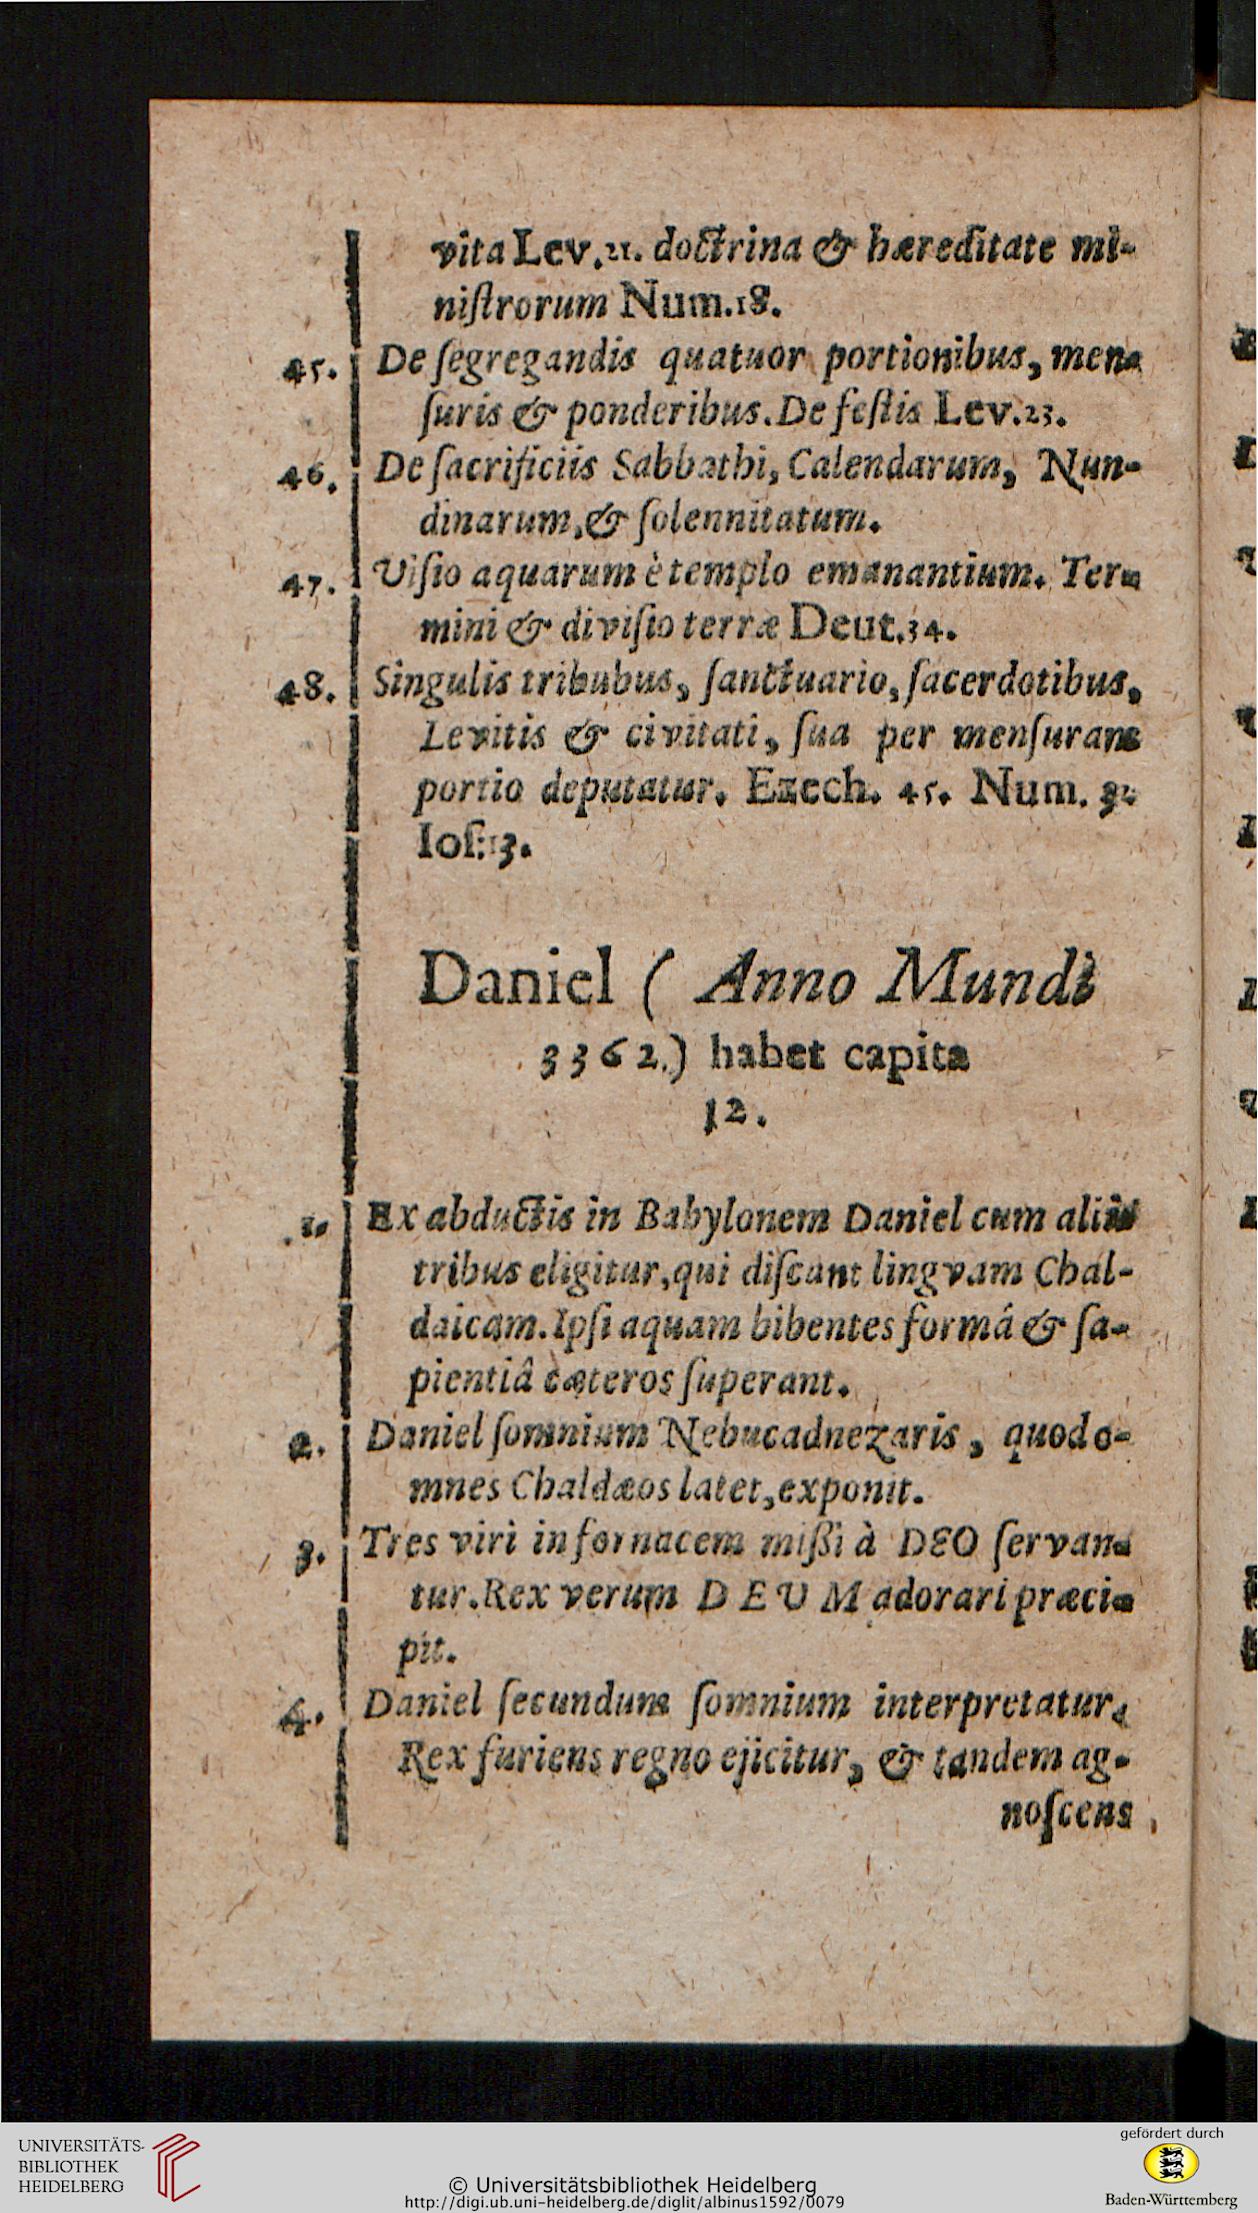 vita Lev. 21. doctrina & hæreditate mi-
niſtrorum Num. 18.
45. De ſegregandis quatuor portionibus, men-
ſuris & ponderibus. De feſtis Lev. 23.
46. De ſacrificiis Sabbathi, Calendarum, Nun-
dinarum, & ſolennitatum.
47. Viſio aquarum è templo emanantium. Ter-
mini & diviſio terræ Deut. 34.
48. Singulis tribubus, ſanctuario, ſacerdotibus,
Levitis & civitati, ſua per menſuram
portio deputatur. Ezech. 45. Num.
Ioſ: 13.
Daniel ( Anno Mundi
3362.) habet capita
12.
1. Ex abductis in Babylonem Daniel cum aliis
tribus eligitur, qui diſcant lingvam Chal-
daicam. Ipſi aquam bibentes formá & ſa-
pientiâ cæteros ſuperant.
2. Daniel ſomnium Nebucadnezaris, quod o-
mnes Chaldæos latet, exponit.
3. Tres viri in fornacem mißi à DEO ſervan-
tur. Rex verum DEUM adorari præci-
pit.
4. Daniel ſecundum ſomnium interpretatur.
Rex furiens regno ejicitur, & tandem ag-
noſcens
UNIVERSITÄTS-
BIBLIOTHEK
HEIDELBERG
© Universitätsbibliothek Heidelberg
http://digi.ub.uni-heidelberg.de/diglit/albinus1592/0079
gefördert durch
Baden-Württemberg